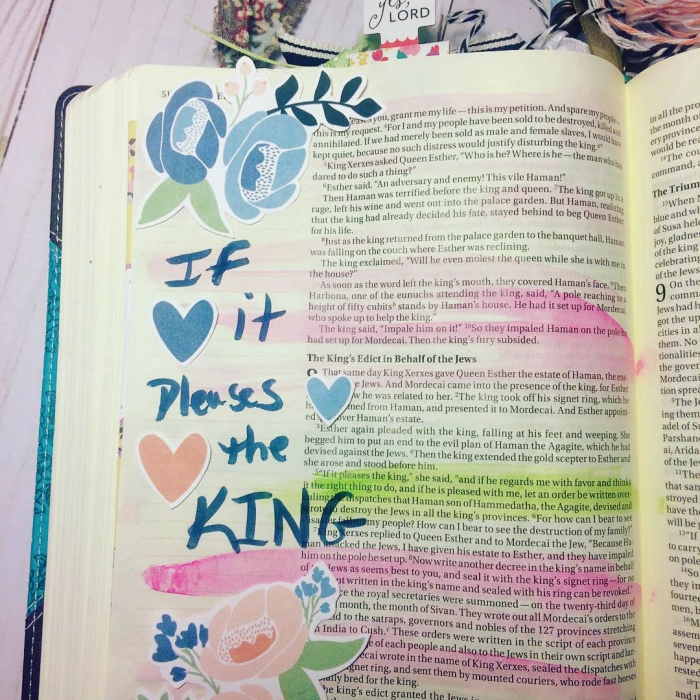 yes,
LORD
If
it
Pleases
the
KING
you, grant me my life — this is my petition. And spare my people—
this is my request. ⁴For I and my people have been sold to be destroyed, killed and
annihilated. If we had merely been sold as male and female slaves, I would have
kept quiet, because no such distress would justify disturbing the king.
⁵King Xerxes asked Queen Esther, “Who is he? Where is he — the man who has
dared to do such a thing?”
⁶Esther said, “An adversary and enemy! This vile Haman!”
Then Haman was terrified before the king and queen. ⁷The king got up in a
rage, left his wine and went out into the palace garden. But Haman, realizing
that the king had already decided his fate, stayed behind to beg Queen Esther
for his life.
⁸Just as the king returned from the palace garden to the banquet hall, Haman
was falling on the couch where Esther was reclining.
The king exclaimed, “Will he even molest the queen while she is with me in
the house?”
As soon as the word left the king’s mouth, they covered Haman’s face. ⁹Then
Harbona, one of the eunuchs attending the king, said, “A pole reaching to a
height of fifty cubits stands by Haman’s house. He had it set up for Mordecai,
who spoke up to help the king.”
The king said, “Impale him on it!” ¹⁰So they impaled Haman on the pole he
had set up for Mordecai. Then the king’s fury subsided.
The King’s Edict in Behalf of the Jews
That same day King Xerxes gave Queen Esther the estate of Haman, the ene-
Jews. And Mordecai came into the presence of the king, for Esther
how he was related to her. ²The king took off his signet ring, which he
from Haman, and presented it to Mordecai. And Esther appoint-
ed over Haman’s estate.
³Esther again pleaded with the king, falling at his feet and weeping. She
begged him to put an end to the evil plan of Haman the Agagite, which he had
devised against the Jews. ⁴Then the king extended the gold scepter to Esther and
she arose and stood before him.
⁵“If it pleases the king,” she said, “and if he regards me with favor and thinks
it the right thing to do, and if he is pleased with me, let an order be written over-
ruling the dispatches that Haman son of Hammedatha, the Agagite, devised and
wrote to destroy the Jews in all the king’s provinces. ⁶For how can I bear to see
disaster fall on my people? How can I bear to see the destruction of my family?”
⁷King Xerxes replied to Queen Esther and to Mordecai the Jew, “Because Ha-
man attacked the Jews, I have given his estate to Esther, and they have impaled
him on the pole he set up. ⁸Now write another decree in the king’s name in behalf
of the Jews as seems best to you, and seal it with the king’s signet ring — for no
written in the king’s name and sealed with his ring can be revoked.”
the royal secretaries were summoned — on the twenty-third day of
month, the month of Sivan. They wrote out all Mordecai’s orders to the
to the satraps, governors and nobles of the 127 provinces stretching
India to Cush. These orders were written in the script of each province
of each people and also to the Jews in their own script and lan-
wrote in the name of King Xerxes, sealed the dispatches with
signet ring, and sent them by mounted couriers, who rode fast horses
bred for the king.
the king’s edict granted the Jews in
The Trium
9